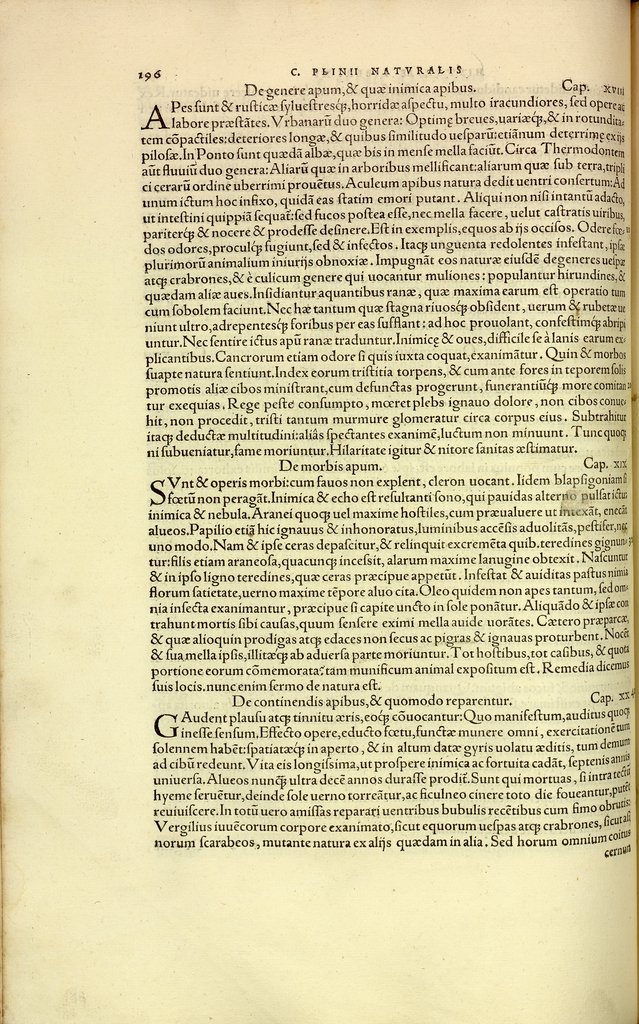 196
C. PLINII NATVRALIS
De genere apum,& quæ inimica apibus. Cap. xviii
APes sunt & rusticæ syluestresq;, horridæ aspectu, multo iracundiores, sed opere ac
labore præstātes. Vrbanarū duo genera: Optimę breues, uariæq;, & in rotundita-
tem cōpactiles: deteriores longæ, & quibus similitudo uesparū: etiānum deterrimę ex ijs
pilosæ. In Ponto sunt quædā albæ, quæ bis in mense mella faciūt. Circa Thermodontem
aūt fluuiū duo genera: Aliarū quæ in arboribus mellificant: aliarum quæ sub terra, tripli
ci cerarū ordine uberrimi prouētus. Aculeum apibus natura dedit uentri consertum: Ad
unum ictum hoc infixo, quidā eas statim emori putant. Aliqui non nisi intantū adacto,
ut intestini quippiā sequat: sed fucos postea esse, nec mella facere, uelut castratis uiribus,
pariterq; & nocere & prodesse desinere. Est in exemplis, equos ab ijs occisos. Odere fœ-
dos odores, proculq; fugiunt, sed & infectos. Itaq; unguenta redolentes infestant, ipsæ
plurimorū animalium iniurijs obnoxiæ. Impugnāt eos naturæ eiusdē degeneres uespæ
atq; crabrones, & è culicum genere qui uocantur muliones: populantur hirundines, &
quædam aliæ aues. Insidiantur aquantibus ranæ, quæ maxima earum est operatio tum
cum sobolem faciunt. Nec hæ tantum quæ stagna riuosq; obsident, uerum & rubetæ ue
niunt ultro, adrepentesq; foribus per eas sufflant: ad hoc prouolant, confestimq; abripi
untur. Nec sentire ictus apū ranæ traduntur. Inimicę & oues, difficile se à lanis earum ex-
plicantibus. Cancrorum etiam odore si quis iuxta coquat, exanimātur. Quin & morbos
suapte natura sentiunt. Index eorum tristitia torpens, & cum ante fores in teporem solis
promotis aliæ cibos ministrant, cum defunctas progerunt, funerantiūq; more comitan
tur exequias. Rege peste consumpto, mœret plebs ignauo dolore, non cibos conue-
hit, non procedit, tristi tantum murmure glomeratur circa corpus eius. Subtrahitur
itaq; deductæ multitudini: aliâs spectantes exanimē, luctum non minuunt. Tunc quoq;
ni subueniatur, fame moriuntur. Hilaritate igitur & nitore sanitas æstimatur.
De morbis apum. Cap. xix
SVnt & operis morbi: cum fauos non explent, cleron uocant. Iidem blapsigoniam si
fœtū non peragāt. Inimica & echo est resultanti sono, qui pauidas alterno pulsat ictu:
inimica & nebula. Aranei quoq; uel maxime hostiles, cum præualuere ut intexāt, enecāt
alueos. Papilio etiā hic ignauus & inhonoratus, luminibus accēsis aduolitās, pestifer, nec
uno modo. Nam & ipse ceras depascitur, & relinquit excremēta quib. teredines gignun
tur: filis etiam araneosa, quacunq; incessit, alarum maxime lanugine obtexit. Nascuntur
& in ipso ligno teredines, quæ ceras præcipue appetūt. Infestat & auiditas pastus nimia
florum satietate, uerno maxime tēpore aluo cita. Oleo quidem non apes tantum, sed om-
nia insecta exanimantur, præcipue si capite uncto in sole ponātur. Aliquādo & ipsæ con
trahunt mortis sibi causas, quum sensere eximi mella auide uorātes. Cætero præparcæ,
& quæ alioquin prodigas atq; edaces non secus ac pigras & ignauas proturbent. Nocēt
& sua mella ipsis, illitæq; ab aduersa parte moriuntur. Tot hostibus, tot casibus, & quota
portione eorum cōmemorata? tam munificum animal expositum est. Remedia dicemus
suis locis. nunc enim sermo de natura est.
De continendis apibus, & quomodo reparentur. Cap. xx
GAudent plausu atq; tinnitu æris, eoq; cōuocantur: Quo manifestum, auditus quoq;
inesse sensum. Effecto opere, educto fœtu, functæ munere omni, exercitationē tum
solennem habēt: spatiatæq; in aperto, & in altum datæ gyris uolatu æditis, tum demum
ad cibū redeunt. Vita eis longissima, ut prospere inimica ac fortuita cadāt, septenis annis
uniuersa. Alueos nunq; ultra decē annos durasse prodit. Sunt qui mortuas, si intra tectū
hyeme seruētur, deinde sole uerno torreātur, ac ficulneo cinere toto die foueantur, putēt
reuiuiscere. In totū uero amissas reparari uentribus bubulis recētibus cum fimo obrutis:
Vergilius iuuēcorum corpore exanimato, sicut equorum uespas atq; crabrones, sicut asi
norum scarabeos, mutante natura ex alijs quædam in alia. Sed horum omnium coitus
cernun